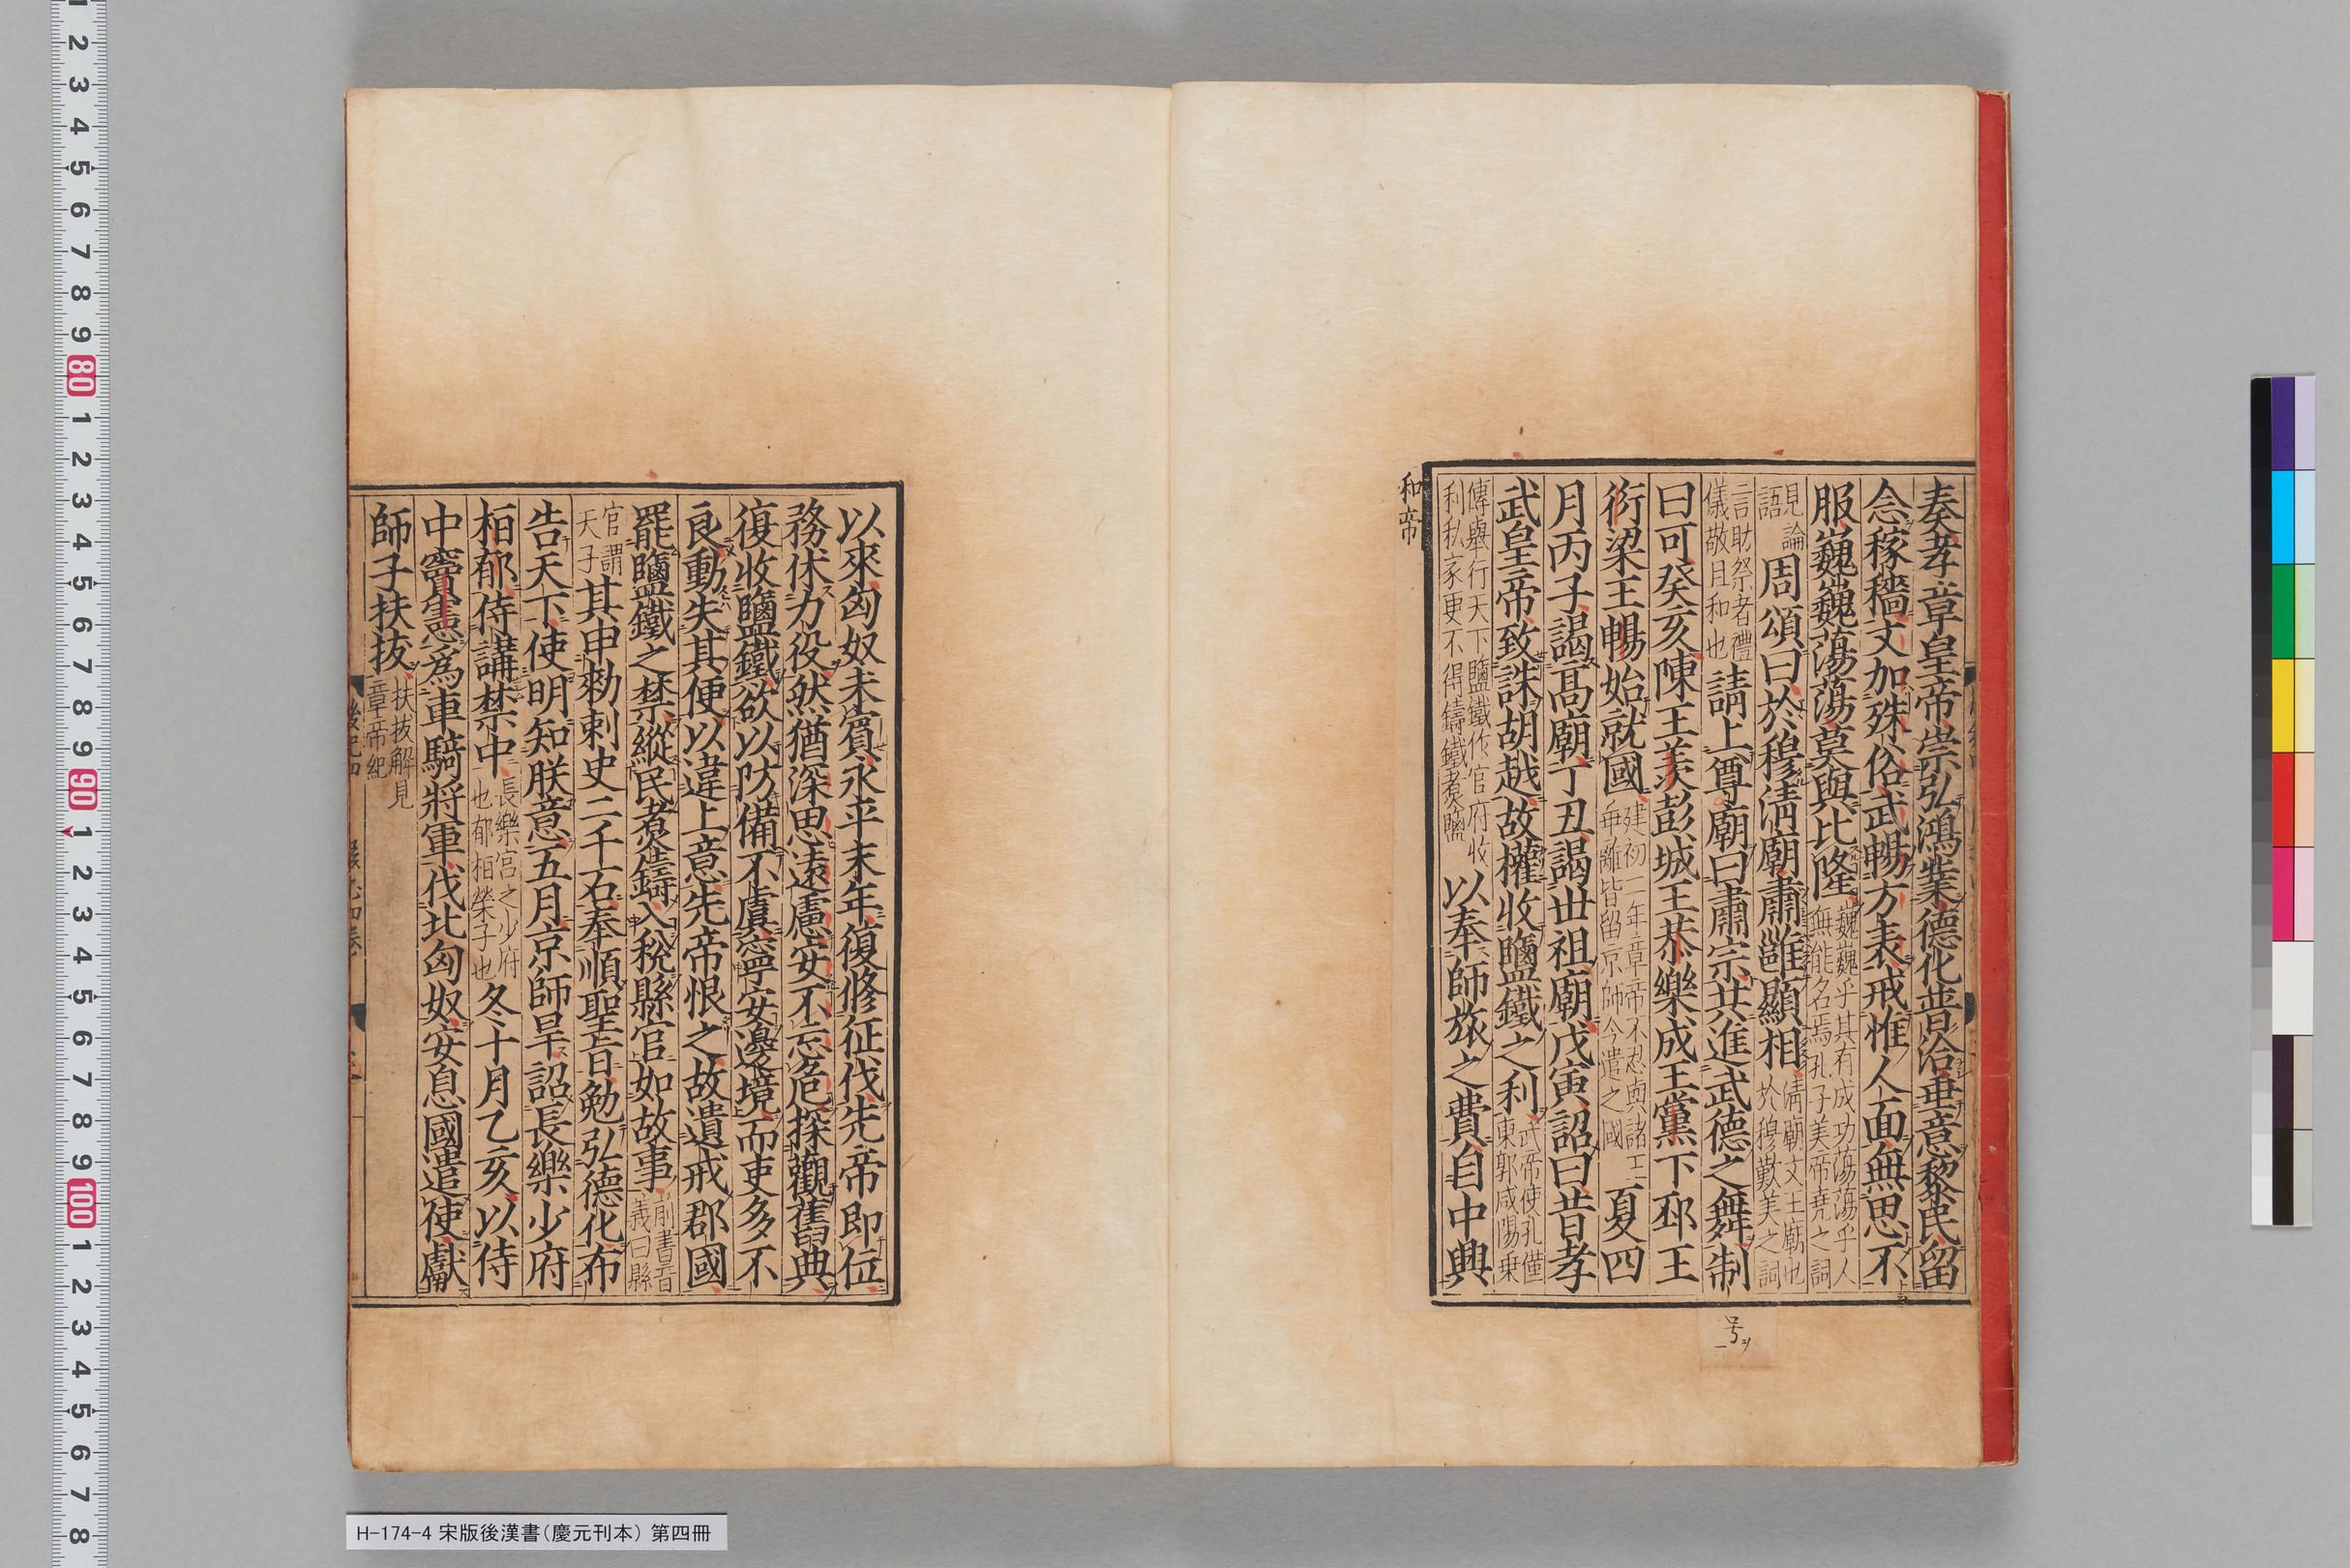 奏孝章皇帝崇弘鴻業德化普洽垂意黎民留
念稼穡文加殊俗武暢方表戒惟人面無思不
服巍巍蕩蕩莫與比隆巍巍乎其有成功蕩蕩乎人無能名焉孔子美帝堯之詞
見論語周頌曰於穆清廟肅雝顯相清廟文王廟也於穆歎美之詞
言助祭者禮儀敬且和也請上尊廟曰肅宗共進武德之舞制
曰可癸亥陳王羨彭城王恭樂成王黨下邳王
衍梁王暢始就國建初二年章帝不忍與諸王乖離皆留京師今遣之國夏四
月丙子謁高廟丁丑謁世祖廟戊寅詔曰昔孝
武皇帝致誅胡越故權收鹽鐵之利武帝使孔僅東郭咸陽乗
傳舉行天下鹽鐵作官府收利私家更不得鑄鐵煑鹽以奉師旅之費自中興
和帝
号
以來匈奴未賓永平末年復修征伐先帝即位
務休力役然猶深思遠慮安不忘危探觀舊典
復收鹽鐵欲以防備不虞寧安邊境而吏多不
良動失其便以違上意先帝恨之故遺戒郡國
罷鹽鐵之禁縱民煑鑄入稅縣官如故事前書音義曰縣
官謂天子其申勑刺史二千石奉順聖旨勉弘德化布
告天下使明知朕意五月京師旱詔長樂少府
桓郁侍講禁中長樂宮之少府也郁桓榮子也冬十月乙亥以侍
中竇憲爲車騎將軍伐北匈奴安息國遣使獻
師子扶拔扶拔解見章帝紀
H-174-4 宋版後漢書(慶元刊本) 第四冊